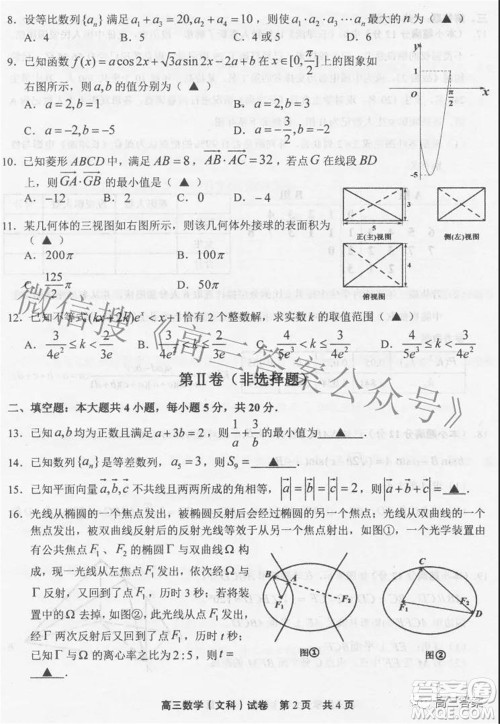 8. 设等比数列{aₙ}满足a₁+a₃=20,a₂+a₄=10,使aₙ>1的最大的n为（ ▲ ）
A. 4  B. 5  C. 4或5  D. 6
9. 已知函数f(x)=a cos2x+√3 a sin2x-2a+b在x∈[0,π/2]上的图象如
右图所示，则a,b的值分别是（ ▲ ）
A. a=2,b=1  B. a=2,b=-1
C. a=-2,b=-5  D. a=-2,b=5
1
0
-5
x
y
π/2
10. 已知菱形ABCD中，满足AB=8，AB·AC=32，若点G在线段BD
上，则GA·GB的最小值是（ ▲ ）
A. -12  B. 2  C. 0  D. -4
11. 某几何体的三视图如右图所示，则该几何体外接球的表面积为
（ ▲ ）
A. 200π  B. 150π
C. 125π/2  D. 50π
3
5
4
正(主)视图
侧(左)视图
俯视图
12. 已知不等式(kx+2k)eˣ<x+1恰有2个整数解，求实数k的取值范围（ ▲ ）
A. 3/4e²≤k<2/3e  B. 3/4e²<k≤2/3e  C. 4/5e³≤k<3/4e²  D. 4/5e³<k≤3/4e²
第Ⅱ卷（非选择题）
二、填空题：本大题共4小题，每小题5分，共20分．
13. 已知a,b均为正数且满足a+3b=2，则1/a+3/b的最小值为 ▲ ．
14. 已知数列{aₙ}是等差数列，a₅=3，则S₉= ▲ ．
15. 已知平面向量a,b,c不共线且两两所成的角相等，|a|=|b|=2,|c|=1，则|a+b+c|= ▲ ．
16. 光线从椭圆的一个焦点发出，被椭圆反射后会经过椭圆的另一个焦点；光线从双曲线的一个
焦点发出，被双曲线反射后的反射光线等效于从另一个焦点发出，如图①，一个光学装置
由有公共焦点F₁、F₂的椭圆Γ与双曲线Ω构
成，现一光线从左焦点F₁发出，依次经Ω与
Γ反射，又回到了点F₁历时3秒；若将装置
中的Ω去掉，如图②，此光线从点F₁发出，
经Γ两次反射后又回到了点F₁历时t秒；若
已知Γ与Ω的离心率之比为2:5，则t=
▲ ．
B
A
F₁
F₂
图①
C
F₁
F₂
D
图②
高三数学(文科)试卷 第 2 页 共 4 页
微信搜《高三答案公众号》